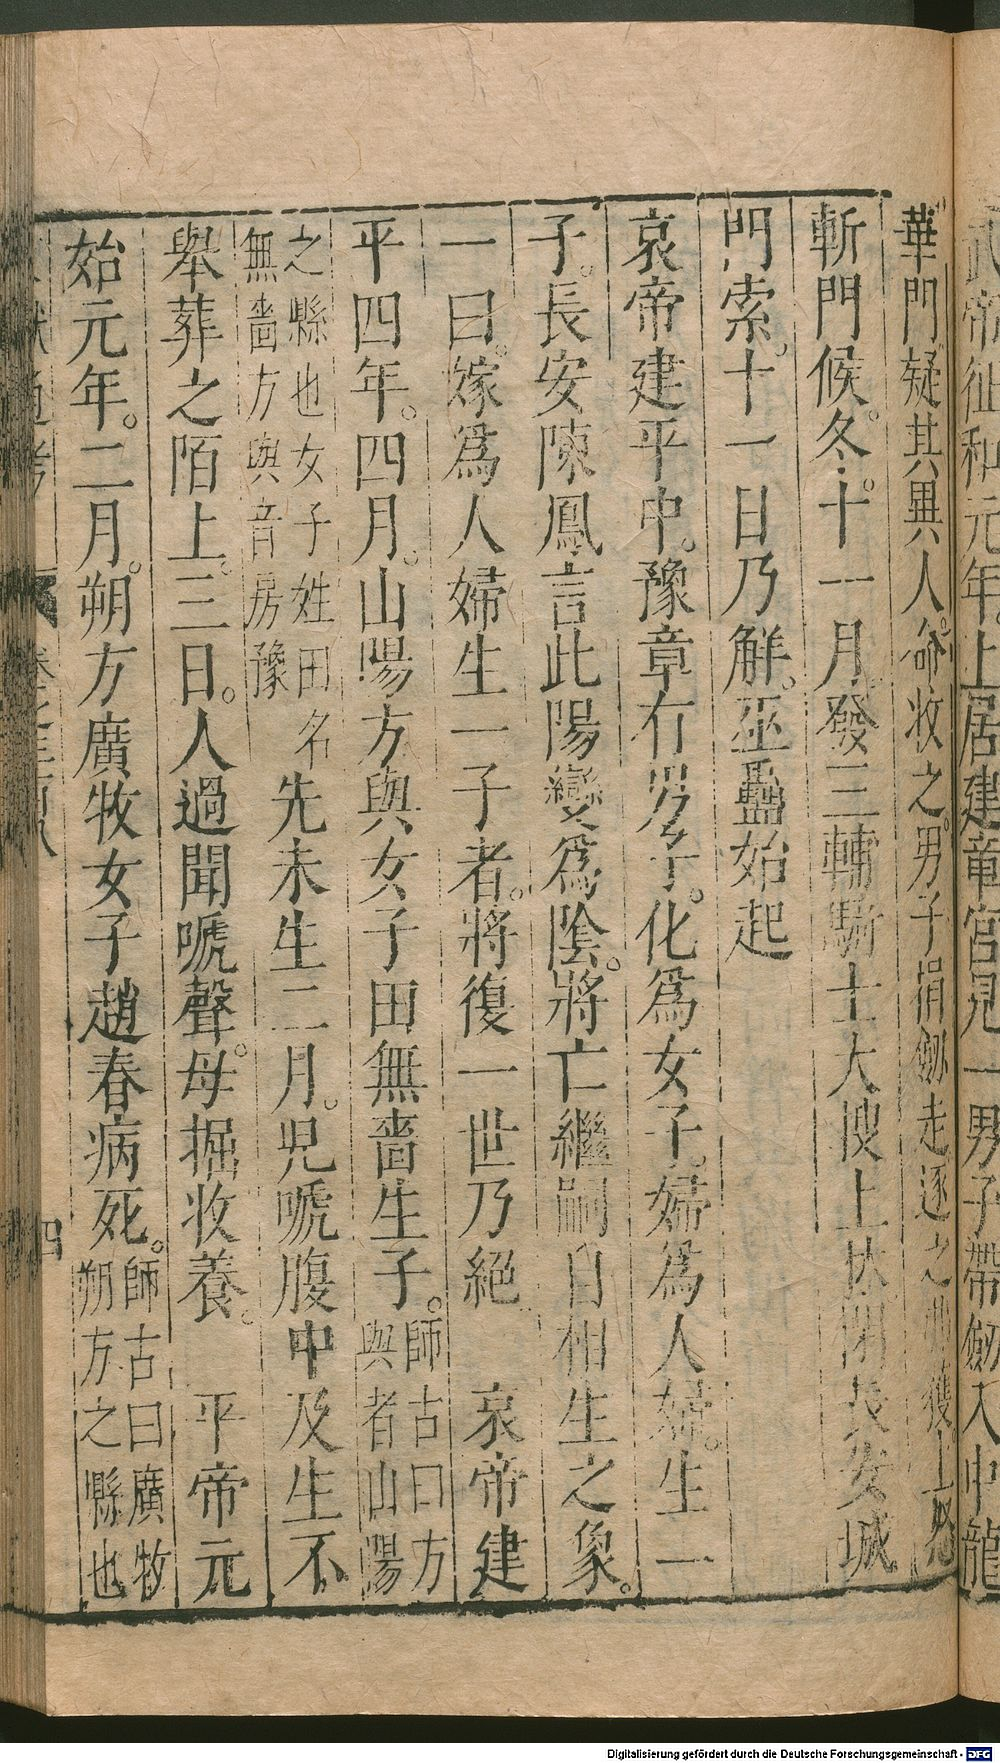 武帝征和元年。上居建章宮見一男子帶劒入中龍
華門疑其異人。命收之。男子捐劒走逐之弗獲。上怒
斬門候。冬。十一月發三輔騎士大搜上林閉長安城
門索。十一日乃解。巫蠱始起
哀帝建平中。豫章有男子。化爲女子。嫁爲人婦。生一
子。長安陳鳳言此陽變爲陰。將亡繼嗣自相生之象。
一曰。嫁爲人婦生一子者。將復一世乃絕　哀帝建
平四年。四月。山陽方與女子田無嗇生子。師古曰方與者山陽
之縣也女子姓田名無嗇方與音房豫先未生二月。兒嗁腹中及生不
舉葬之陌上。三日。人過聞嗁聲。母掘收養。　平帝元
始元年。二月。朔方廣牧女子趙春病死。師古曰廣牧朔方之縣也
文獻通考　卷之三百八　四
Digitalisierung gefördert durch die Deutsche Forschungsgemeinschaft - DFG